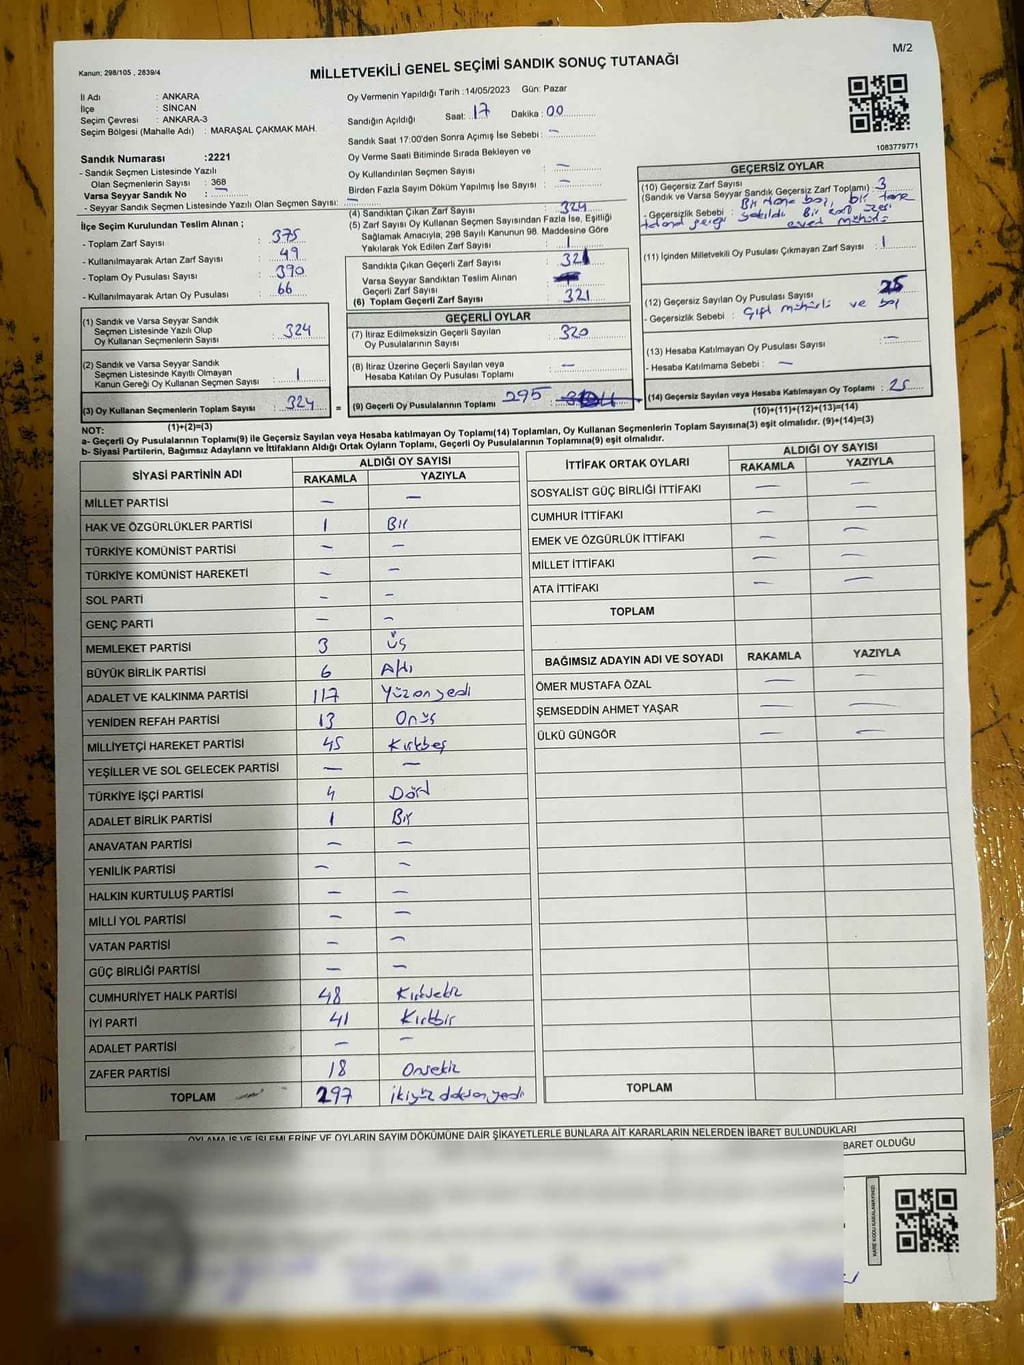 Kanun; 298/105 , 2839/4
M/2
MİLLETVEKİLİ GENEL SEÇİMİ SANDIK SONUÇ TUTANAĞI
İl Adı : ANKARA
İlçe : SİNCAN
Seçim Çevresi : ANKARA-3
Seçim Bölgesi (Mahalle Adı) : MARAŞAL ÇAKMAK MAH.
Sandık Numarası :2221
- Sandık Seçmen Listesinde Yazılı
Olan Seçmenlerin Sayısı : 368
Varsa Seyyar Sandık No : —
- Seyyar Sandık Seçmen Listesinde Yazılı Olan Seçmen Sayısı: —
Oy Vermenin Yapıldığı Tarih :14/05/2023 Gün: Pazar
Sandığın Açıldığı Saat: 17 Dakika : 00
Sandık Saat 17:00'den Sonra Açılmış İse Sebebi : —
Oy Verme Saati Bitiminde Sırada Bekleyen ve
Oy Kullandırılan Seçmen Sayısı : —
Birden Fazla Sayım Döküm Yapılmış İse Sayısı : —
1083779771
İlçe Seçim Kurulundan Teslim Alınan ;
- Toplam Zarf Sayısı : 375
- Kullanılmayarak Artan Zarf Sayısı : 49
- Toplam Oy Pusulası Sayısı : 390
- Kullanılmayarak Artan Oy Pusulası : 66
(1) Sandık ve Varsa Seyyar Sandık
Seçmen Listesinde Yazılı Olup
Oy Kullanan Seçmenlerin Sayısı : 324
(2) Sandık ve Varsa Seyyar Sandık
Seçmen Listesinde Kayıtlı Olmayan
Kanun Gereği Oy Kullanan Seçmen Sayısı : 1
(3) Oy Kullanan Seçmenlerin Toplam Sayısı : 324
(1)+(2)=(3)
(4) Sandıktan Çıkan Zarf Sayısı : 324
(5) Zarf Sayısı Oy Kullanan Seçmen Sayısından Fazla İse, Eşitliği
Sağlamak Amacıyla, 298 Sayılı Kanunun 98. Maddesine Göre
Yakılarak Yok Edilen Zarf Sayısı : 1
Sandıkta Çıkan Geçerli Zarf Sayısı : 321
Varsa Seyyar Sandıktan Teslim Alınan
Geçerli Zarf Sayısı :
(6) Toplam Geçerli Zarf Sayısı : 321
GEÇERLİ OYLAR
(7) İtiraz Edilmeksizin Geçerli Sayılan
Oy Pusulalarının Sayısı : 320
(8) İtiraz Üzerine Geçerli Sayılan veya
Hesaba Katılan Oy Pusulası Toplamı : —
= (9) Geçerli Oy Pusulalarının Toplamı 295
GEÇERSİZ OYLAR
(10) Geçersiz Zarf Sayısı
(Sandık ve Varsa Seyyar Sandık Geçersiz Zarf Toplamı) : 3
- Geçersizlik Sebebi : Bir tane boş, bir tane
(11) İçinden Milletvekili Oy Pusulası Çıkmayan Zarf Sayısı : 1
(12) Geçersiz Sayılan Oy Pusulası Sayısı : 25
- Geçersizlik Sebebi : Çift mühürlü ve boş
(13) Hesaba Katılmayan Oy Pusulası Sayısı : —
- Hesaba Katılmama Sebebi : —
(14) Geçersiz Sayılan veya Hesaba Katılmayan Oy Toplamı : 25
(10)+(11)+(12)+(13)=(14)
NOT:
a- Geçerli Oy Pusulalarının Toplamı(9) ile Geçersiz Sayılan veya Hesaba katılmayan Oy Toplamı(14) Toplamları, Oy Kullanan Seçmenlerin Toplam Sayısına(3) eşit olmalıdır. (9)+(14)=(3)
b- Siyasi Partilerin, Bağımsız Adayların ve İttifakların Aldığı Ortak Oyların Toplamı, Geçerli Oy Pusulalarının Toplamına(9) eşit olmalıdır.
SİYASİ PARTİNİN ADI ALDIĞI OY SAYISI
RAKAMLA YAZIYLA
MİLLET PARTİSİ — —
HAK VE ÖZGÜRLÜKLER PARTİSİ 1 Bir
TÜRKİYE KOMÜNİST PARTİSİ — —
TÜRKİYE KOMÜNİST HAREKETİ — —
SOL PARTİ — —
GENÇ PARTİ — —
MEMLEKET PARTİSİ 3 Üç
BÜYÜK BİRLİK PARTİSİ 6 Altı
ADALET VE KALKINMA PARTİSİ 117 Yüzonyedi
YENİDEN REFAH PARTİSİ 13 Onüç
MİLLİYETÇİ HAREKET PARTİSİ 45 Kırkbeş
YEŞİLLER VE SOL GELECEK PARTİSİ — —
TÜRKİYE İŞÇİ PARTİSİ 4 Dört
ADALET BİRLİK PARTİSİ 1 Bir
ANAVATAN PARTİSİ — —
YENİLİK PARTİSİ — —
HALKIN KURTULUŞ PARTİSİ — —
MİLLİ YOL PARTİSİ — —
VATAN PARTİSİ — —
GÜÇ BİRLİĞİ PARTİSİ — —
CUMHURİYET HALK PARTİSİ 48 Kırksekiz
İYİ PARTİ 41 Kırkbir
ADALET PARTİSİ — —
ZAFER PARTİSİ 18 Onsekiz
TOPLAM 297 ikiyüz doksan yedi
İTTİFAK ORTAK OYLARI ALDIĞI OY SAYISI
RAKAMLA YAZIYLA
SOSYALİST GÜÇ BİRLİĞİ İTTİFAKI — —
CUMHUR İTTİFAKI — —
EMEK VE ÖZGÜRLÜK İTTİFAKI — —
MİLLET İTTİFAKI — —
ATA İTTİFAKI — —
TOPLAM
BAĞIMSIZ ADAYIN ADI VE SOYADI RAKAMLA YAZIYLA
ÖMER MUSTAFA ÖZAL — —
ŞEMSEDDİN AHMET YAŞAR — —
ÜLKÜ GÜNGÖR — —
TOPLAM
OYLAMA İŞ VE İŞLEMLERİNE VE OYLARIN SAYIM DÖKÜMÜNE DAİR ŞİKAYETLERLE BUNLARA AİT KARARLARIN NELERDEN İBARET BULUNDUKLARI
BARET OLDUĞU
KARE KODU KARALAMAYINIZ!